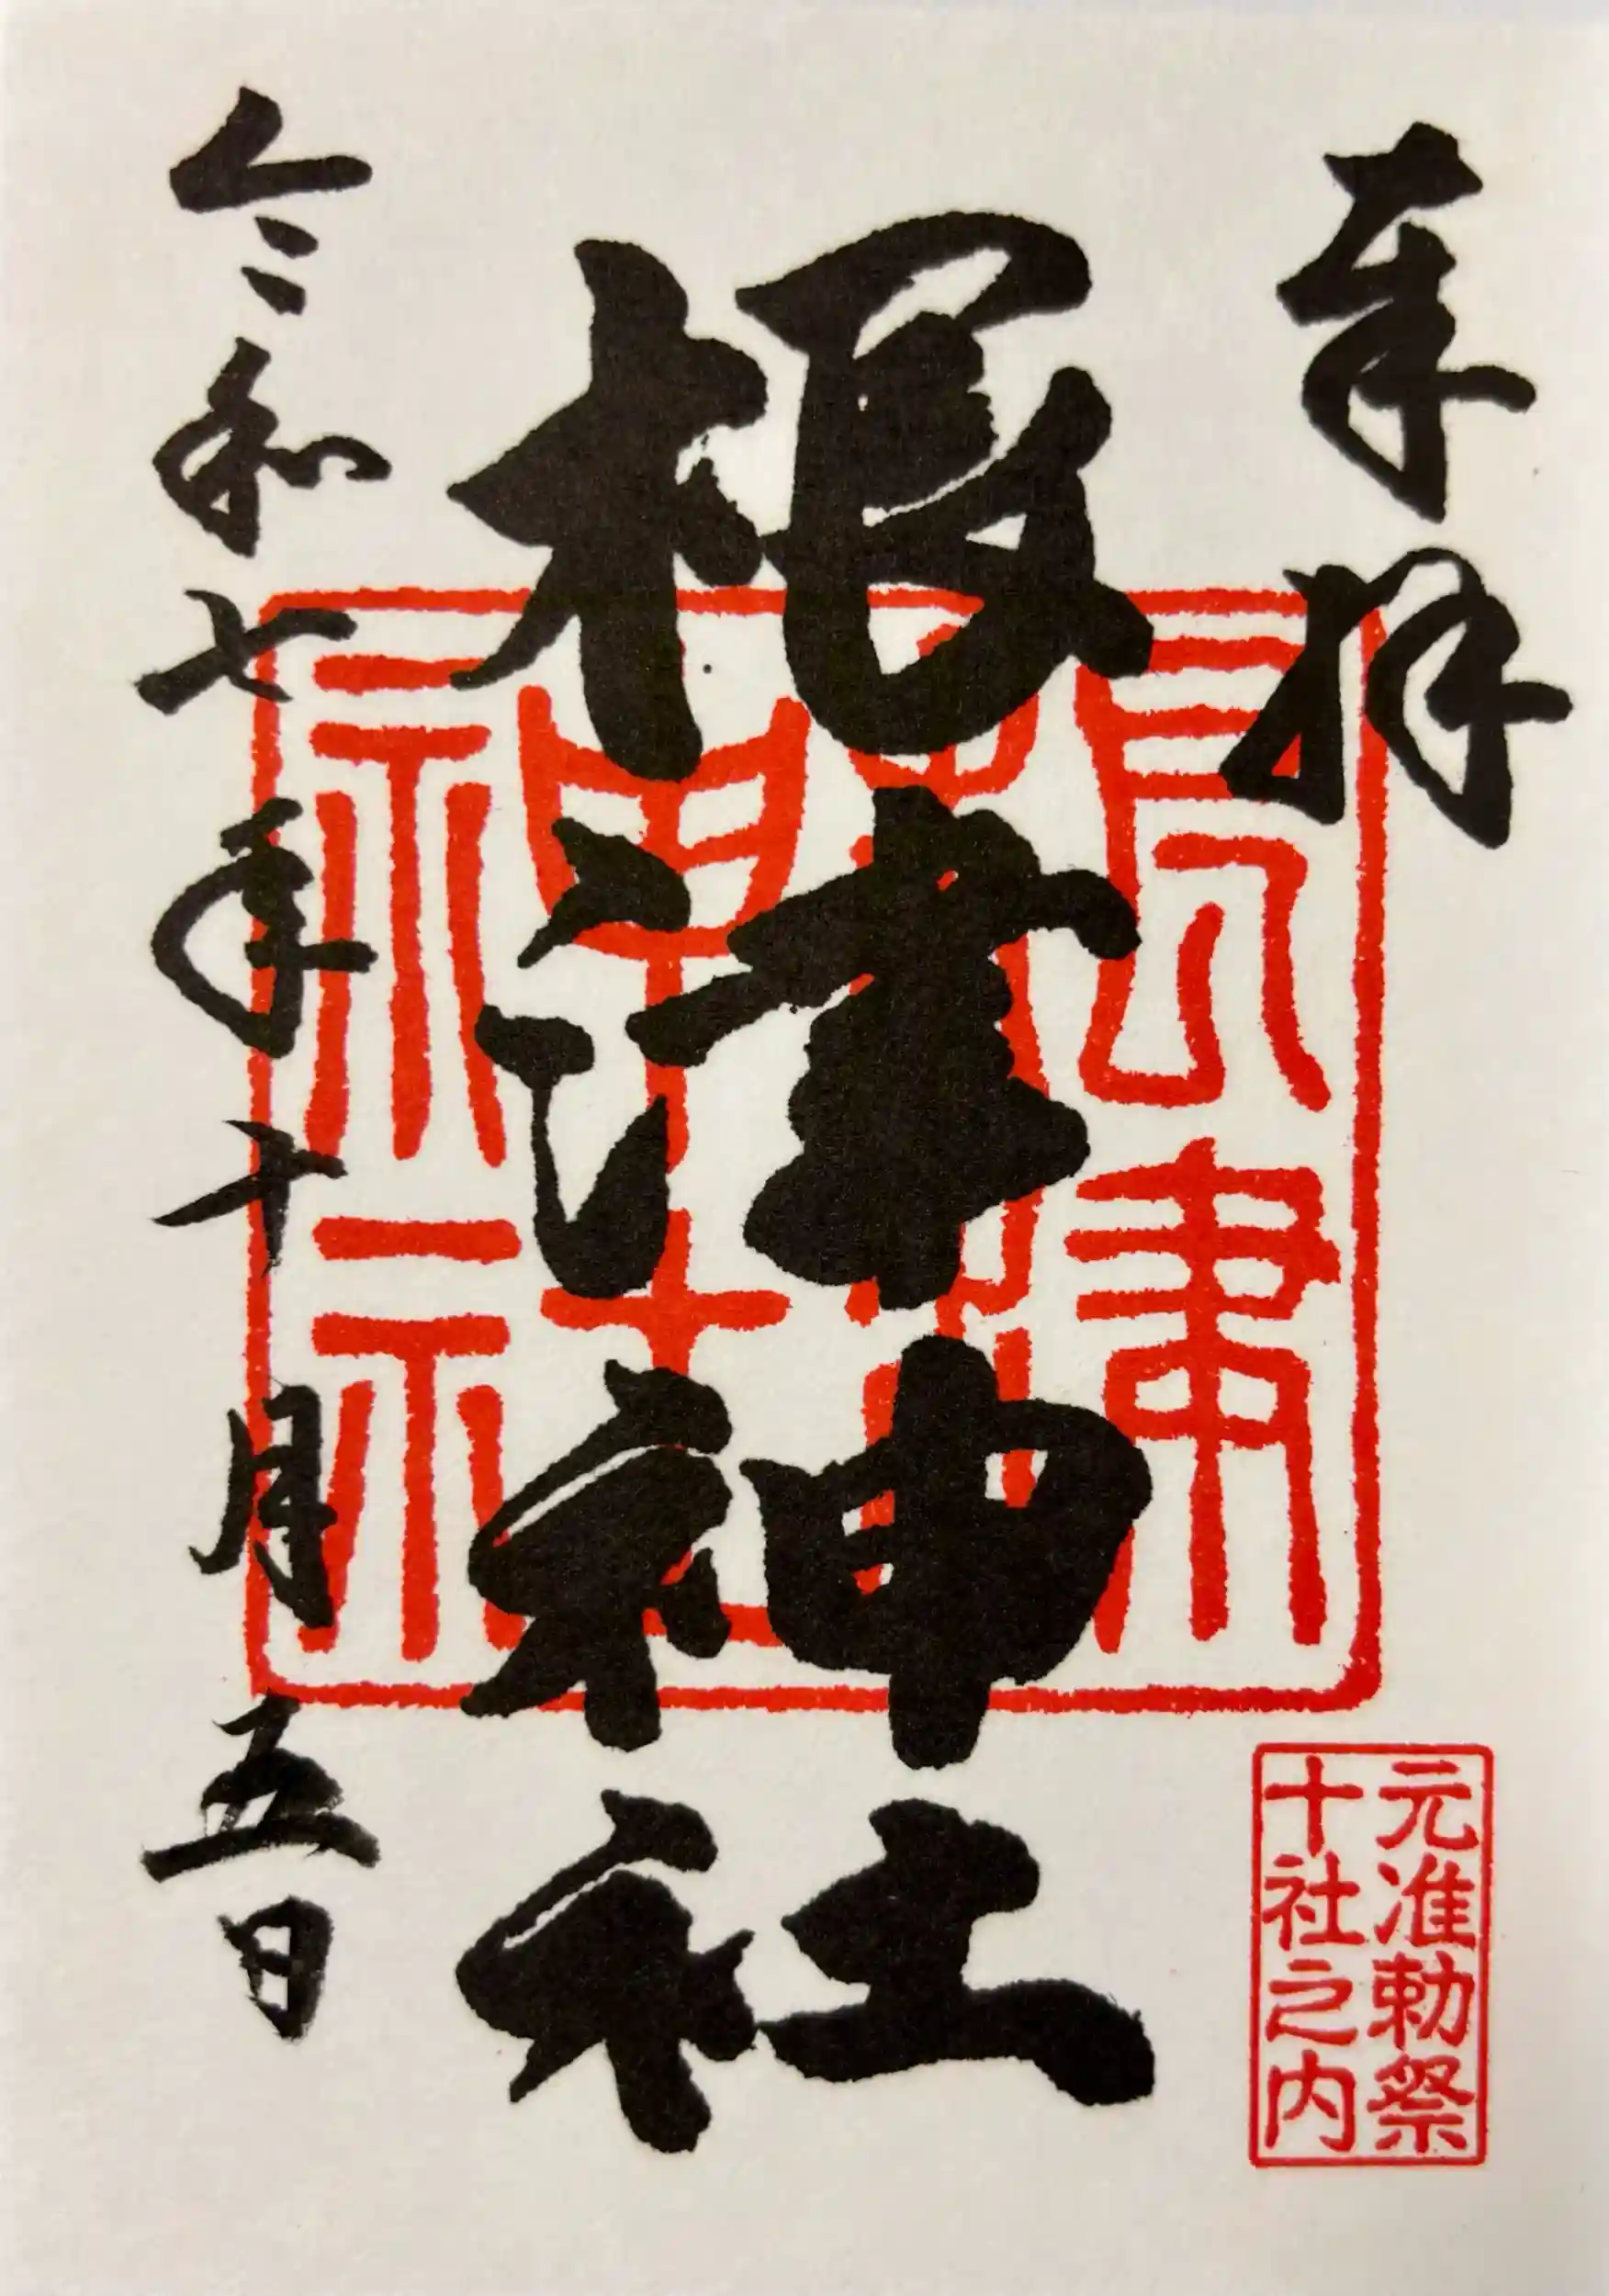 奉拝
根津神社
根津
神社
令和七年十月五日
元准勅祭
十社之内